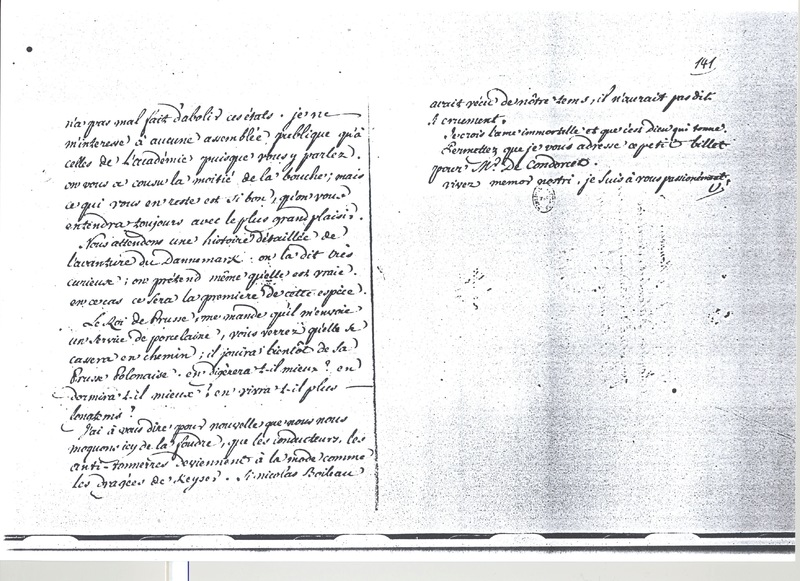 n'a pas mal fait d'abolir ces états. je ne
m'interesse à aucune assemblée publique qu'à
celles de L'académie puisque vous y parlez.
on vous a cousu la moitié de la bouche; mais
ce qui vous en reste est si bon, qu'on vous
entendra toujours avec le plus grand plaisir.
Nous attendons une histoire détaillée de
l'avanture du Dannemark. on la dit très
curieuse; on prétend même qu'elle est vraie.
en ce cas ce sera la première de cette espèce.
Le Roi de Prusse, me mande qu'il m'envoie
un servic de porcelaine, vous verrez qu'elle se
cassera en chemin; il jouira bientôt de sa
Prusse Polonaise. en digèrera t-il mieux? en
dormira t-il mieux? en vivra t-il plus
longtems?
J'ai à vous dire pour nouvelle que nous nous
moquons icy de la foudre, que les conducteurs, les
anti-tonnerres deviennent à la mode comme
les dragées de Keyser. Si nicolas Boileau
141
avait vécu de nôtre tems, il n'aurait pas dit
si crument.
Je crois l'ame immortelle et que c'est dieu qui tonne.
Permettez que je vous adresse ce petit billet
pour Mr. De Condorcet.
vivez memor nostri, je suis à vous passionément
V.